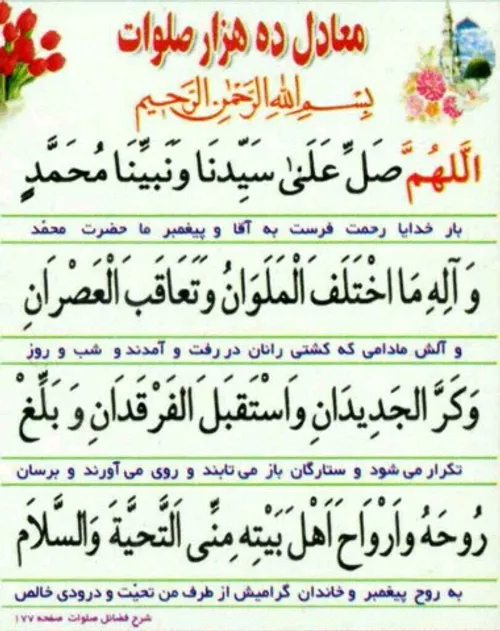 معادل ده هزار صلوات
بِسْمِ اللهِ الرَّحْمٰنِ الرَّحیمِ
اَللّٰهُمَّ صَلِّ عَلَىٰ سَیِّدِنَا وَنَبِیِّنَا مُحَمَّدٍ
بار خدایا رحمت فرست به آقا و پیغمبر ما حضرت محمّد
وَ آلِهِ مَا اخْتَلَفَ الْمَلَوَانُ وَتَعَاقَبَ الْعَصْرَانِ
و آلش مادامی که کشتی رانان در رفت و آمدند و شب و روز
وَکَرَّ الْجَدِیدَانِ وَاسْتَقْبَلَ الْفَرْقَدَانِ وَ بَلِّغْ
تکرار می شود و ستارگان باز می تابند و روی می آورند و برسان
رُوحَهُ وَاَرْوَاحَ اَهْلَ بَیْتِهِ مِنِّی اَلتَّحِیَّةَ وَالسَّلاَمَ
به روح پیغمبر و خاندان گرامیش از طرف من تحیّت و درودی خالص
شرح فضائل صلوات صفحه ۱۷۷